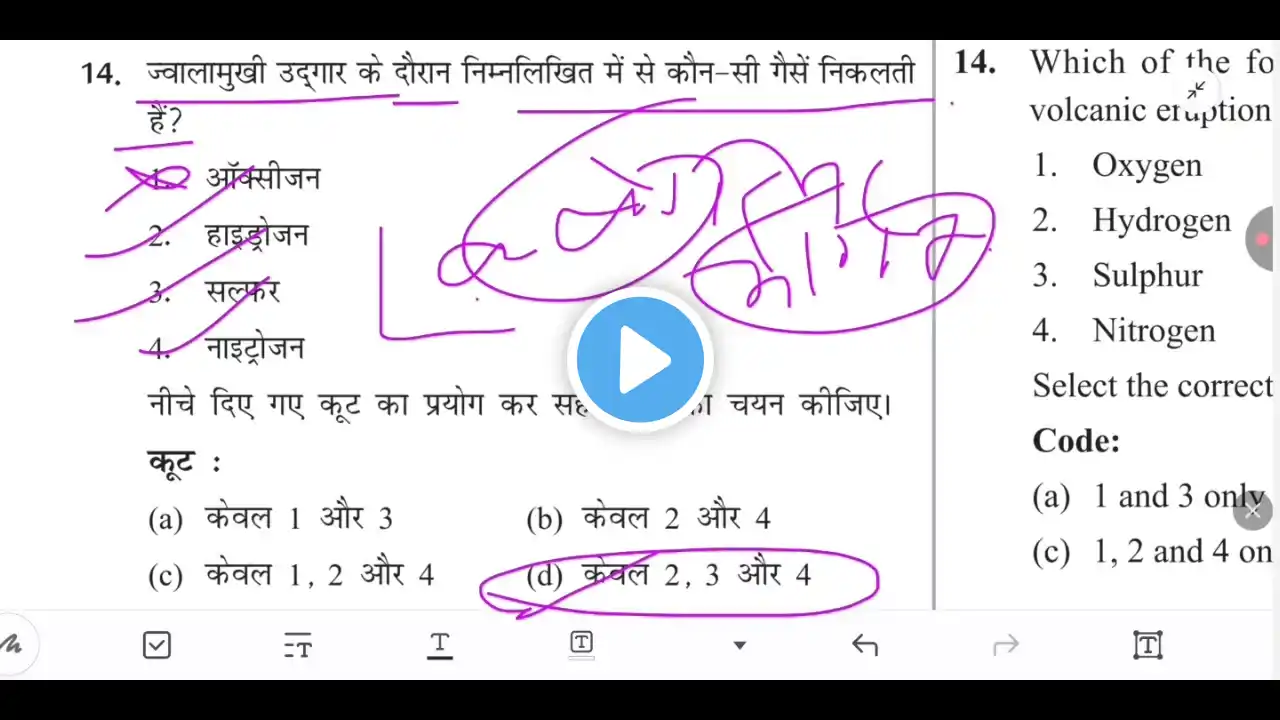 14. ज्वालामुखी उद्गार के दौरान निम्नलिखित में से कौन-सी गैसें निकलती
हैं?
1. ऑक्सीजन
2. हाइड्रोजन
3. सल्फर
4. नाइट्रोजन
नीचे दिए गए कूट का प्रयोग कर चयन कीजिए।
कूट :
(a) केवल 1 और 3 (b) केवल 2 और 4
(c) केवल 1, 2 और 4 (d) केवल 2, 3 और 4
14. Which of the fo
volcanic eruption
1. Oxygen
2. Hydrogen
3. Sulphur
4. Nitrogen
Select the correct
Code:
(a) 1 and 3 only
(c) 1, 2 and 4 on